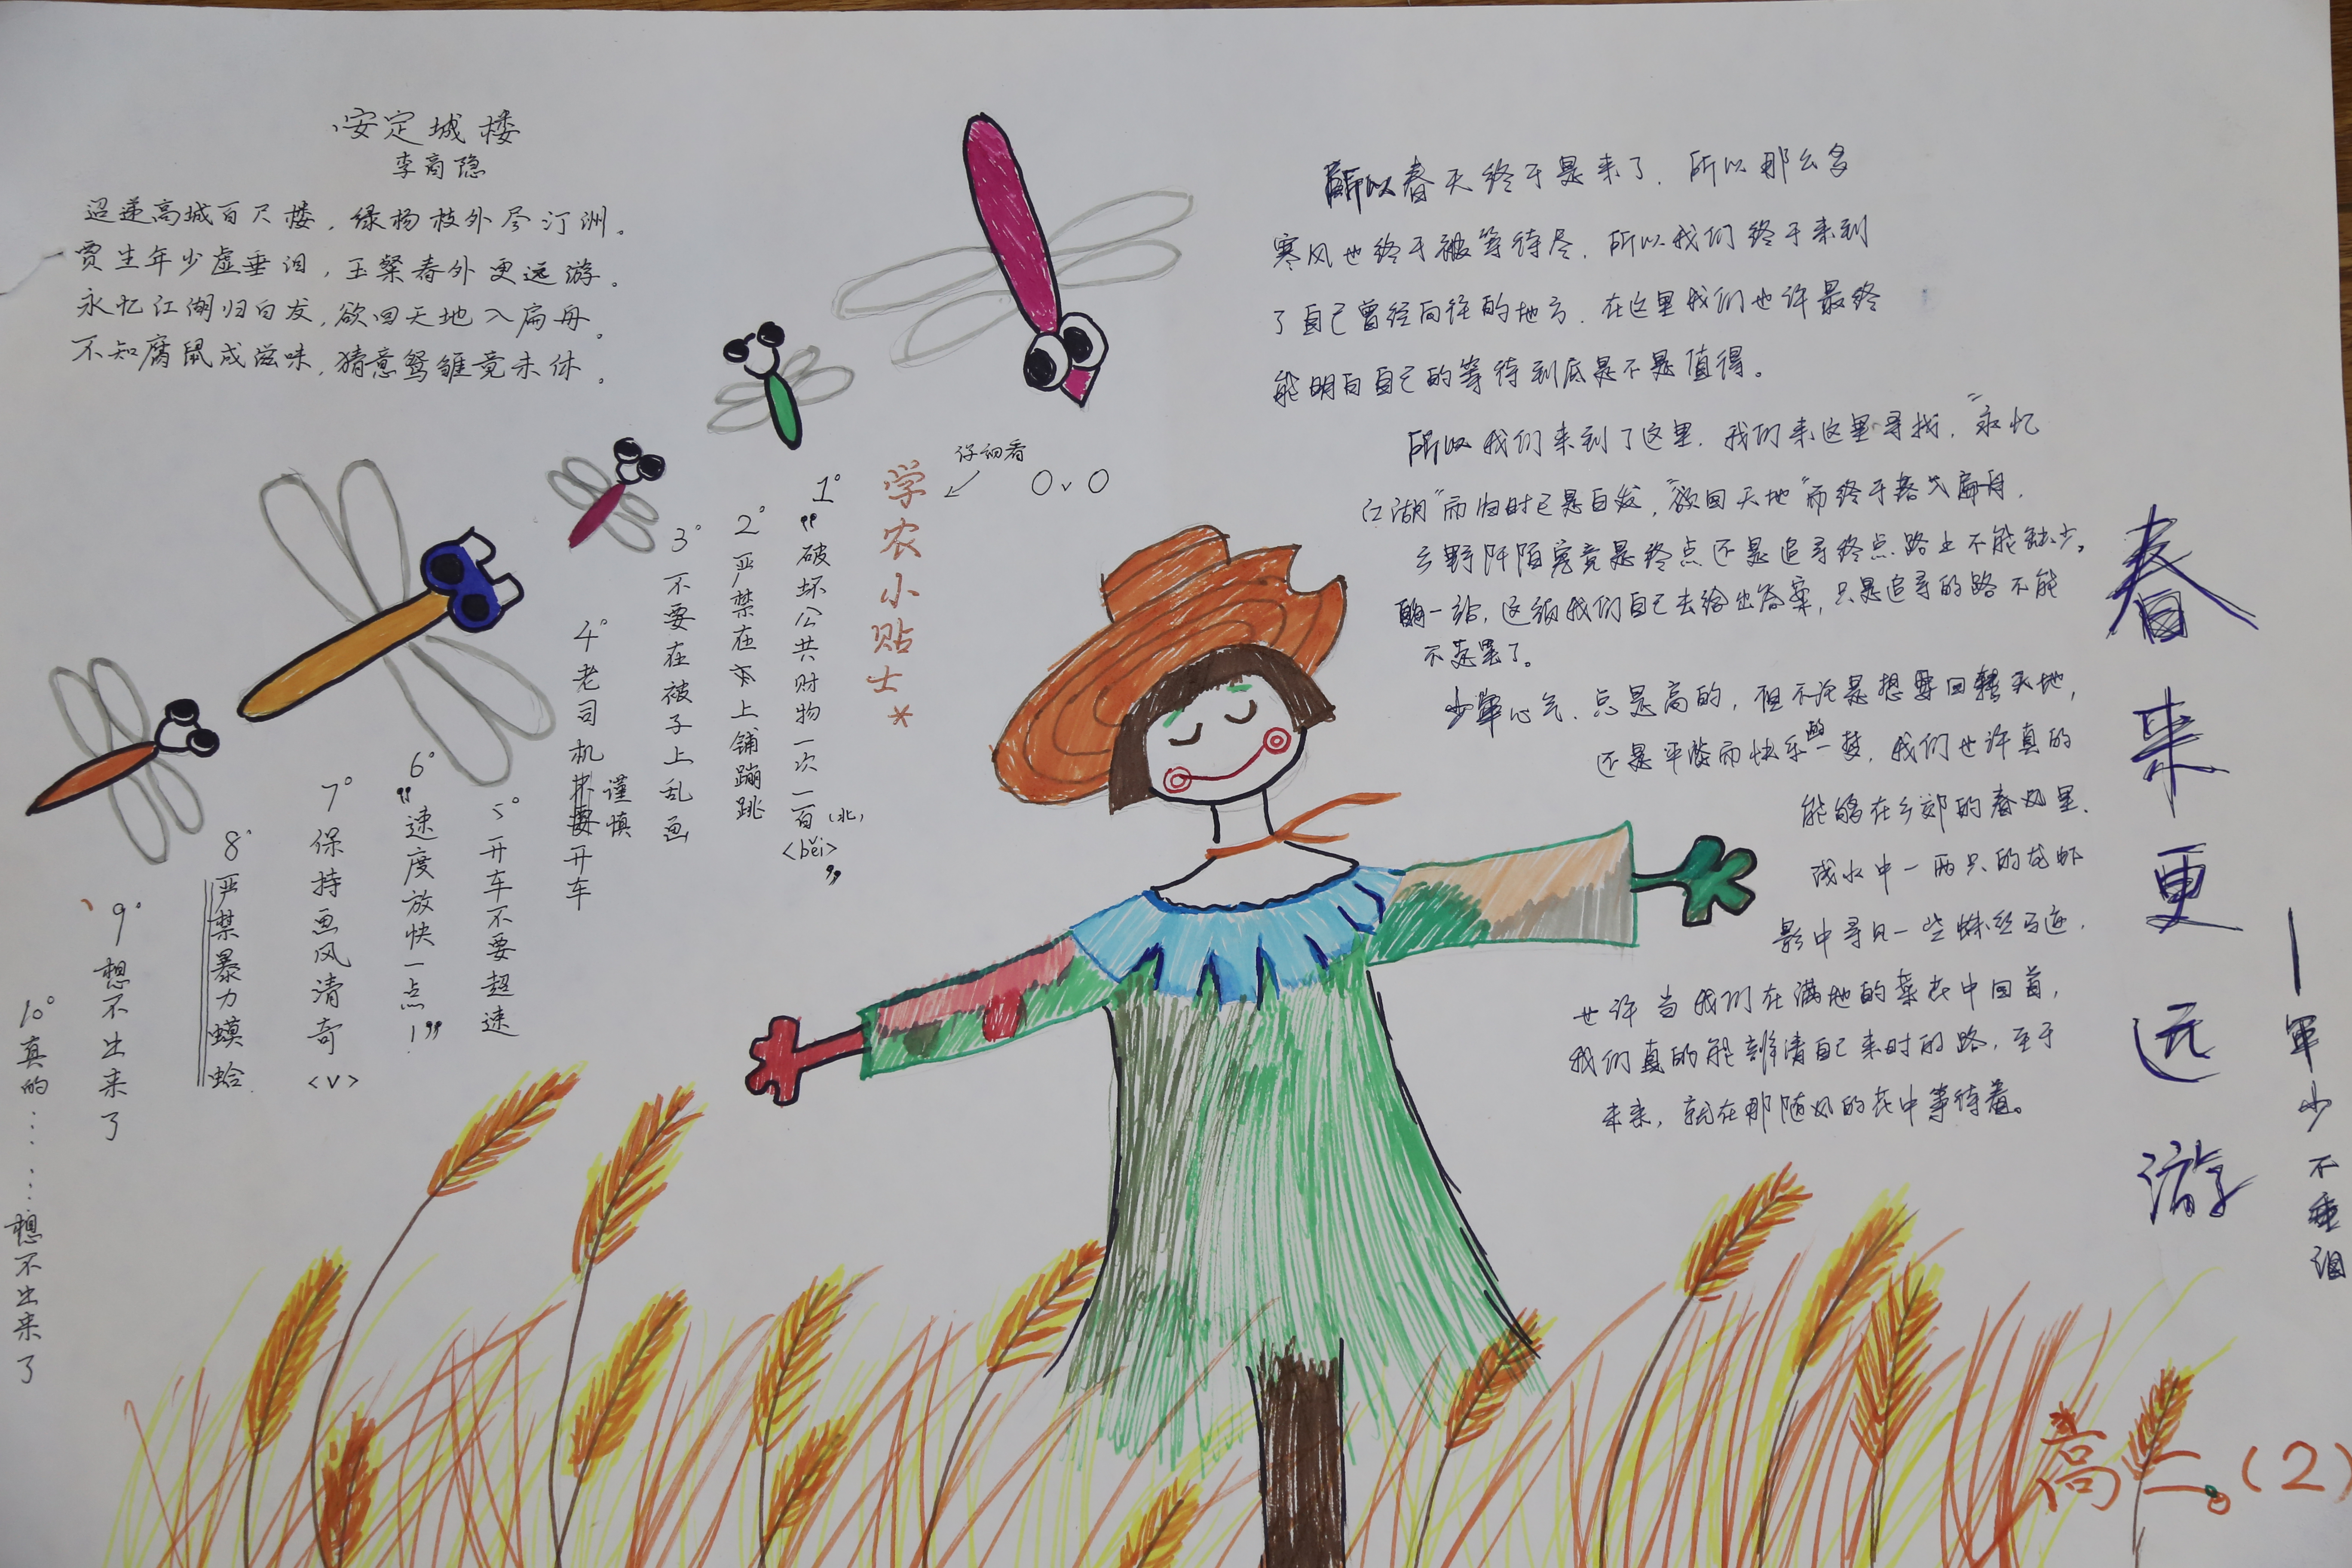 安定城楼
李商隐
迢递高城百尺楼，绿杨枝外尽汀洲。
贾生年少虚垂泪，王粲春外更远游。
永忆江湖归白发，欲回天地入扁舟。
不知腐鼠成滋味，猜意鸳雏竟未休。
学农小贴士*
仔细看
OvO
1° “破坏公共财物一次一百（北）
<běi>”
2° 严禁在床上铺蹦跳
3° 不要在被子上乱画
4° 老司机谨慎开车
5° 开车不要超速
6° “速度放快一点！”
7° 保持画风清奇
<v>
8° 严禁暴力蟆蛤
9° 想不出来了
10° 真的……想不出来了
所以春天终于是来了，所以那么多
寒风也终于被等待尽，所以我们终于来到
了自己曾经向往的地方，在这里我们也许最终
能明白自己的等待到底是不是值得。
所以我们来到了这里，我们来这里寻找，“永忆
江湖”而归时已是白发，“欲回天地”而终于落入扁舟，
乡野阡陌究竟是终点还是追寻终点路上不能缺少
的一站，这须我们自己去给出答案，只是追寻的路不能
不走罢了。
少年心气，总是高的，但不论是想要回转天地，
还是平淡而快乐的一梦，我们也许真的
能够在乡郊的春风里，
或水中一两只的龙虾
影中寻见一些蛛丝马迹，
也许当我们在满地的菜花中回首，
我们真的能辨清自己来时的路，至于
未来，就在那随风的花中等待着。
春来更远游
—年少不垂泪
高二。（2）